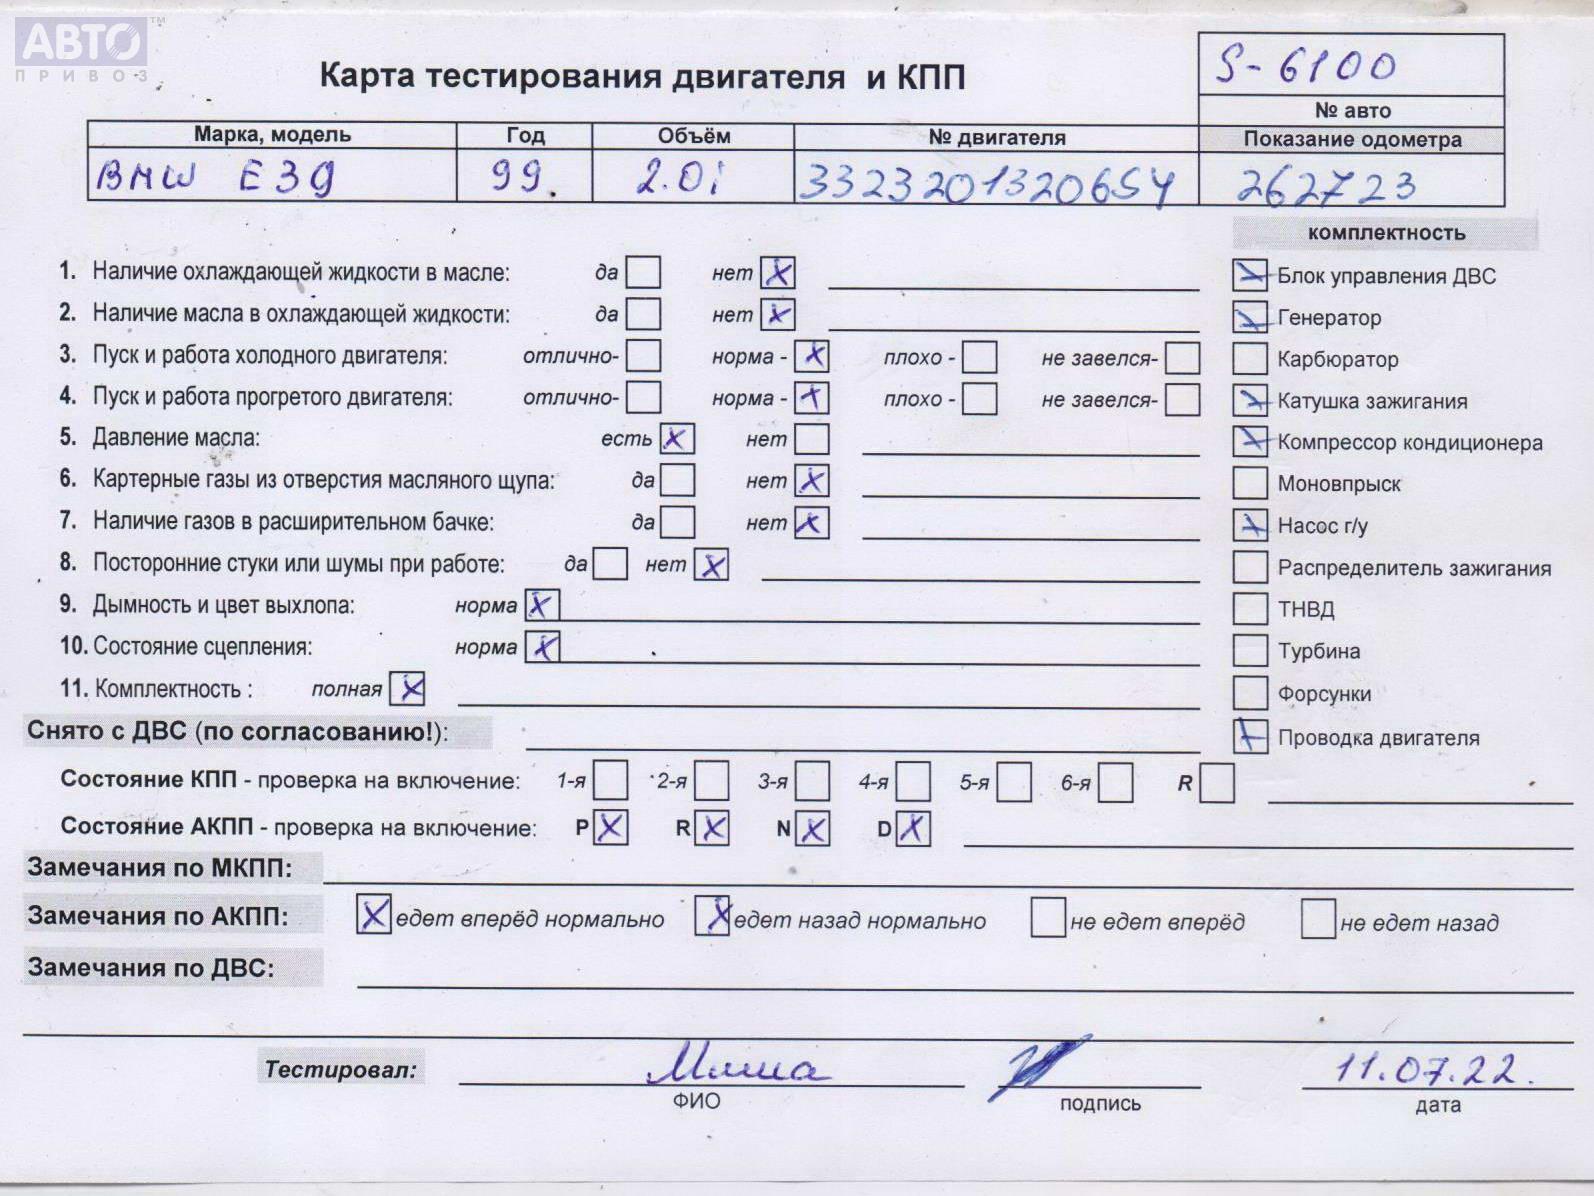 АВТО™
ПРИВОЗ
Карта тестирования двигателя и КПП
S-6100
№ авто
Марка, модель Год Объём № двигателя Показание одометра
BMW E39 99. 2.0i 33232013206S4 262723
комплектность
1. Наличие охлаждающей жидкости в масле: да нет X
Блок управления ДВС
2. Наличие масла в охлаждающей жидкости: да нет X
Генератор
3. Пуск и работа холодного двигателя: отлично- норма - X плохо - не завелся-
Карбюратор
4. Пуск и работа прогретого двигателя: отлично- норма - X плохо - не завелся-
Катушка зажигания
5. Давление масла: есть X нет
Компрессор кондиционера
6. Картерные газы из отверстия масляного щупа: да нет X
Моновпрыск
7. Наличие газов в расширительном бачке: да нет X
Насос г/у
8. Посторонние стуки или шумы при работе: да нет X
Распределитель зажигания
9. Дымность и цвет выхлопа: норма X
ТНВД
10. Состояние сцепления: норма X
Турбина
11. Комплектность : полная X
Форсунки
Снято с ДВС (по согласованию!):
Проводка двигателя
Состояние КПП - проверка на включение: 1-я 2-я 3-я 4-я 5-я 6-я R
Состояние АКПП - проверка на включение: P X R X N X D X
Замечания по МКПП:
Замечания по АКПП: X едет вперёд нормально X едет назад нормально не едет вперёд не едет назад
Замечания по ДВС:
Тестировал: Миша 11.07.22.
ФИО подпись дата